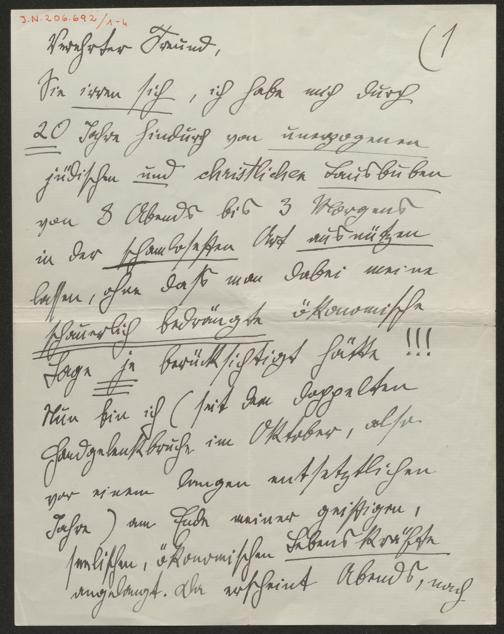 J.N. 206.692/1-4
(1
Verehrter Freund,
Sie irren sich, ich habe mich durch
20 Jahre hindurch von unerzogenen
jüdischen und christlichen Lausbuben
von 8 Abends bis 3 Morgens
in der schamlosesten Art ausnützen
lassen, ohne dass man dabei meine
schauerlich bedrängte ökonomische
Lage je berücksichtigt hätte !!!
Nun bin ich (seit dem doppelten
Handgelenkbruche im Oktober, also
vor einem langen entsetzlichen
Jahre) am Ende meiner geistigen,
seelischen, ökonomischen Lebenskräfte
angelangt. Da erscheint Abends, nach